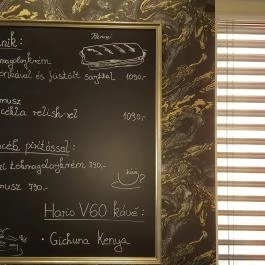 nik:
Panini
magolajkrém
onikával és füstölt sajttal 1090,-
musz
cékla relish-sel 1090,-
pirítóssal:
tökmagolajkrém 790,-
musz 790.-
Hario V60 kávé:
• Gichuna Kenya